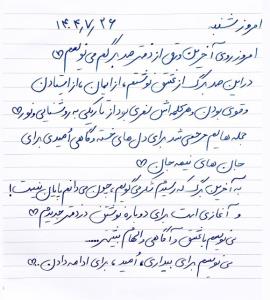 امروز شنبه ۱۴۰۴/۷/۲۶
امروز روی آخرین ورق از دفتر صد برگم می‌نویسم♡
در این صد برگ از عشق نوشتم، از ایمان، از ایستادن
و قوی بودن و هر کلمه‌اش سفری بود از تاریکی به روشنایی و نور♡
جمله‌هایم مرهمی شد برای دل‌های خسته و گاهی امیدی برای
جان‌های نیمه‌جان♡
به آخرین برگ که رسیدم شکر می‌گویم، چون می‌دانم پایان نیست!
و آغازی است برای دوباره نوشتن در دفتر جدیدم♡
می‌نویسم با عشق و آگاهی و الهام بیشتر.....
می‌نویسم برای بیداری، امید، برای ادامه دادن..♡